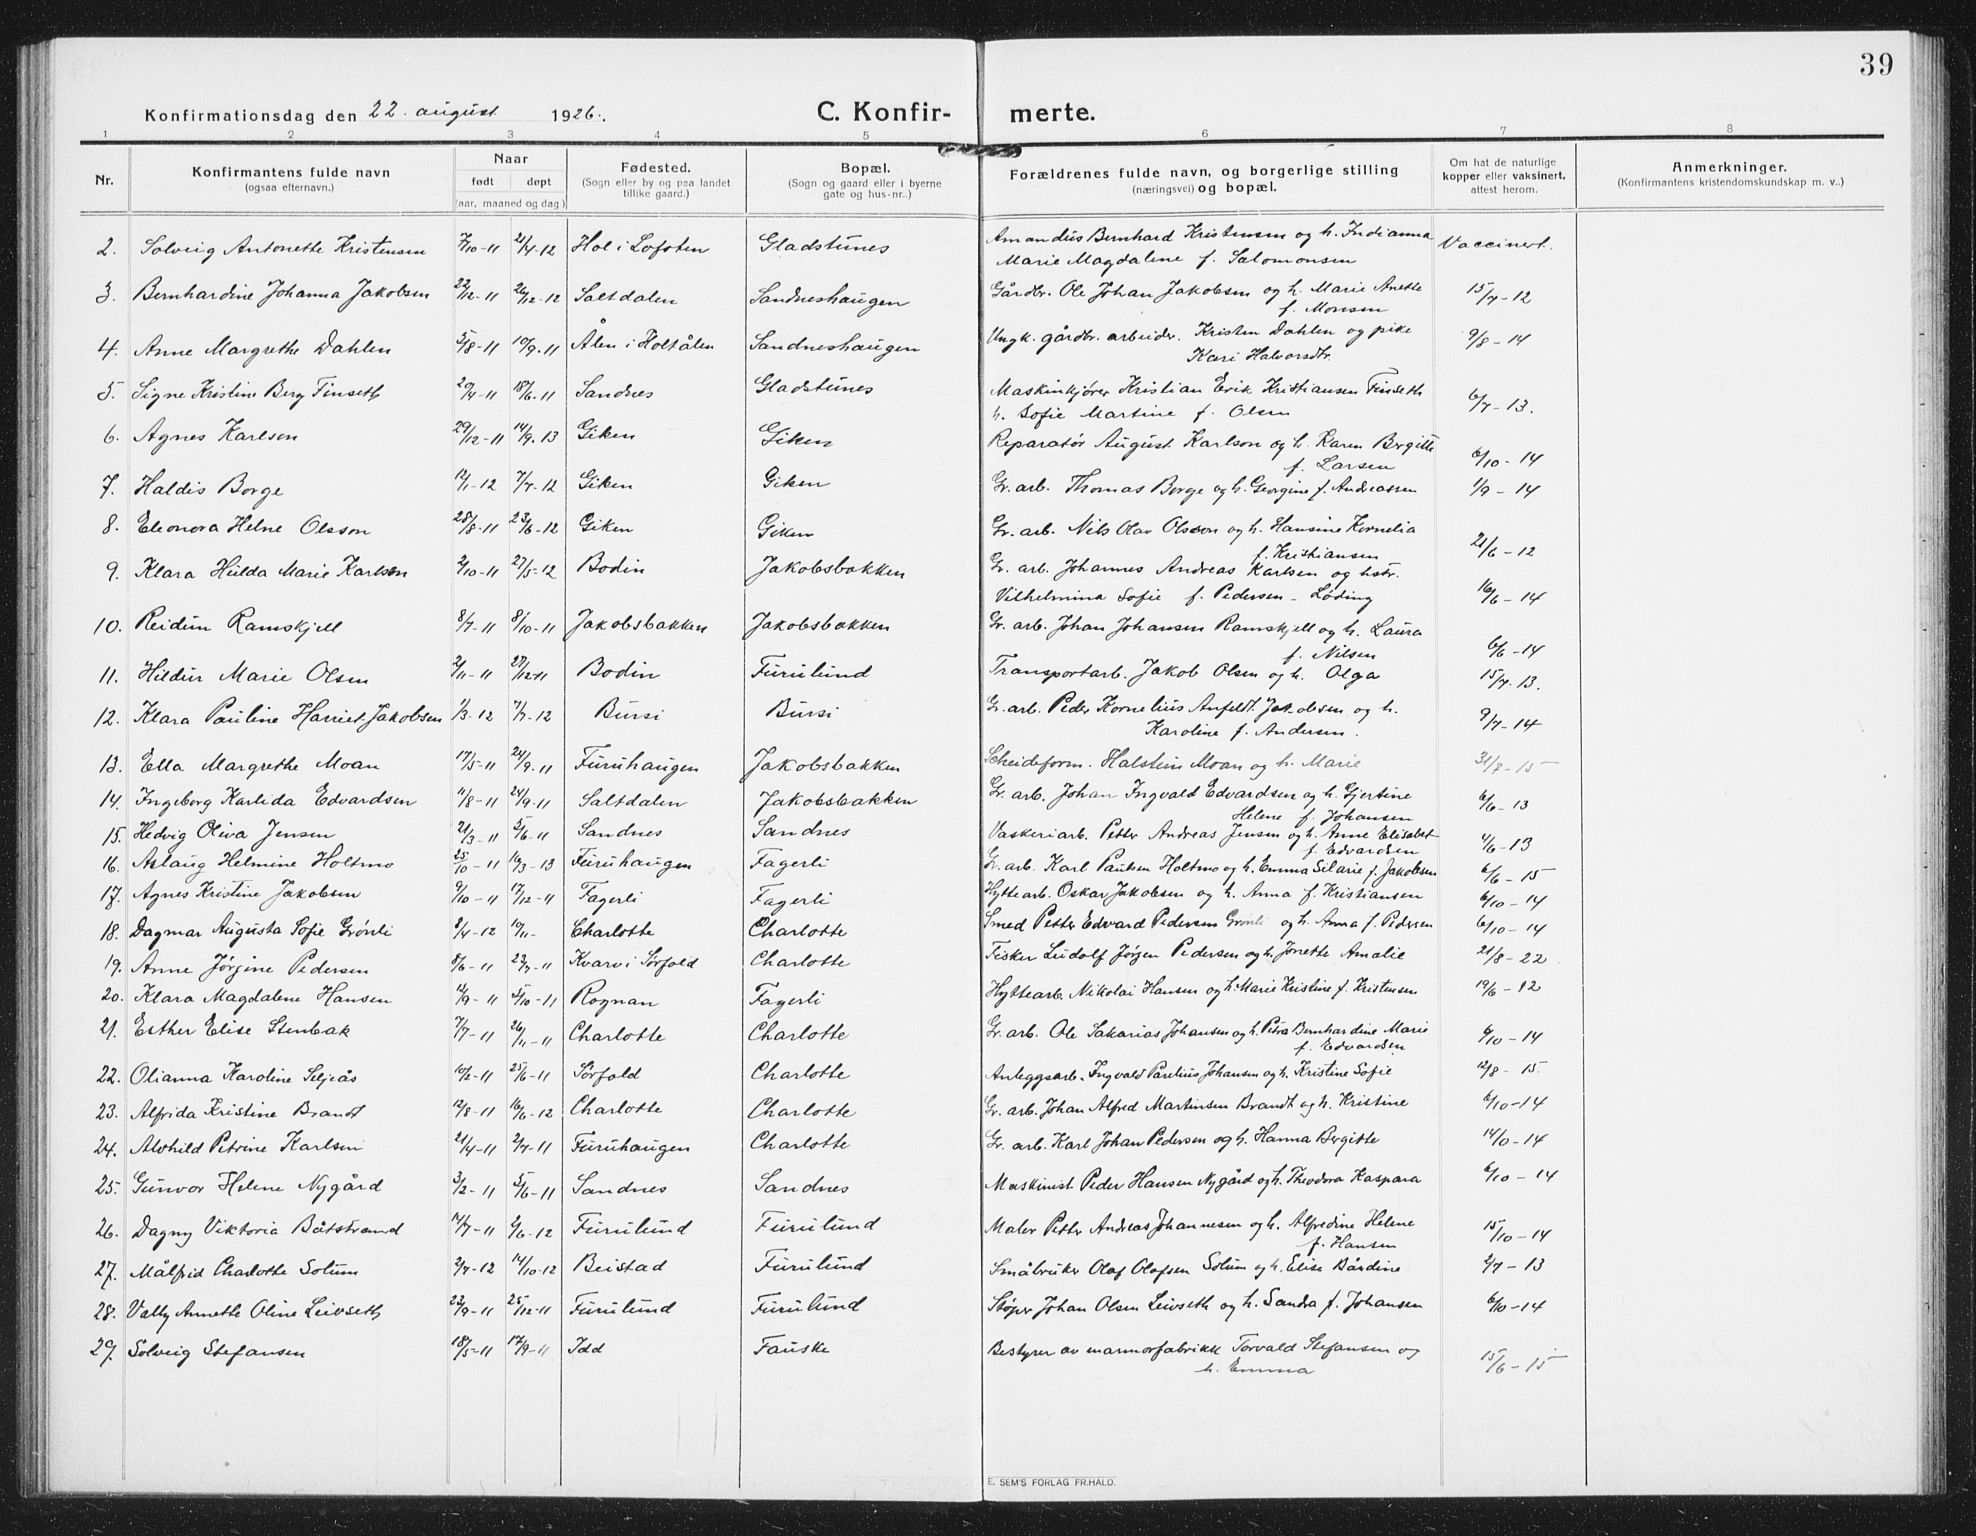 39
Konfirmationsdag den 22. august 1926. C. Konfir- merte.
1 2 3 4 5 6 7 8
Nr. Konfirmantens fulde navn (ogsaa efternavn.) Naar født døpt (aar, maaned og dag) Fødested. (Sogn eller by og paa landet tillike gaard.) Bopæl. (Sogn og gaard eller i byerne gate og hus-nr..) Forældrenes fulde navn, og borgerlige stilling (næringsvei) og bopæl. Om hat de naturlige kopper eller vaksinert, attest herom. Anmerkninger. (Konfirmantens kristendomskundskap m. v..)
2. Solveig Antonette Kristensen 7/10-11 21/4-12 Hol i Lofoten Gladstunes Amandus Bernhard Kristensen og h. Indianna Vaccinert.
Marie Magdalene f. Salomonsen
3. Bernhardine Johanna Jakobsen 22/12-11 26/12-12 Saltdalen Sandneshaugen Gårdbr. Ole Johan Jakobsen og h. Marie Anette 15/7-12
f. Monsen
4. Anne Margrethe Dahlen 5/8-11 10/9-11 Ålen i Holtålen Sandneshaugen Ungk. gårdbr. arbeider. Kristen Dahlen og pike 9/8-14
Kari Halvorsdtr.
5. Signe Kristine Berg Finseth 20/4-11 18/6-11 Sandnes Gladstunes Maskinkjører Kristian Erik Kristiansen Finseth 6/7-13.
h. Sofie Martine f. Olsen
6. Agnes Karlson 29/12-11 14/9-13 Giken Giken Reparatør August Karlson og h. Karen Bergitte
f. Larsen 6/10-14
7. Haldis Borge 12/1-12 7/7-12 Giken Giken Gr. arb. Thomas Borge og h. Georgine f. Andreassen 1/9-14
8. Eleonora Helne Olsson 28/8-11 23/6-12 Giken Giken Gr. arb. Nils Olav Olsson og h. Hansine Kornelia
f. Kristiansen 21/6-12
9. Klara Hulda Marie Karlsen 2/10-11 27/5-12 Bodin Jakobsbakken Gr. arb. Johannes Andreas Karlsen og hstr.
Vilhelmina Sofie f. Pedersen - Løding 16/6-14
10. Reidun Ramskjell 8/7-11 8/10-11 Jakobsbakken Jakobsbakken Gr. arb. Johan Johansen Ramskjell og h. Laura
f. Nilsen 6/6-14
11. Hildur Marie Olsen 2/11-11 27/12-11 Bodin Furulund Transportarb. Jakob Olsen og h. Olga 15/7-13.
12. Klara Pauline Harriet Jakobsen 1/3-12 7/7-12 Bursi Bursi Gr. arb. Peder Kornelius Anfeldt Jakobsen og h. 9/7-14
Karoline f. Andersen.
13. Ella Margrethe Moan 17/5-11 24/9-11 Furuhaugen Jakobsbakken Scheideform. Halstein Moan og h. Marie 31/7-15
14. Ingeborg Karlida Edvardsen 11/8-11 24/9-11 Saltdalen Jakobsbakken Gr. arb. Johan Ingvald Edvardsen og h. Gjertine 6/6-13
Helene f. Johansen
15. Hedvig Oliva Jensen 21/3-11 5/6-11 Sandnes Sandnes Vaskeriarb. Petter Andreas Jensen og h. Anne Elisabet 4/6-13
f. Edvardsen
16. Aslaug Helmine Holtmo 25/10-11 16/3-13 Furuhaugen Fagerli Gr. arb. Karl Paulsen Holtmo og h. Emma Silarie f. Jakobsen 6/6-15
17. Agnes Kristine Jakobsen 9/10-11 17/12-11 Fagerli Fagerli Hyttearb. Oskar Jakobsen og h. Anna f. Kristiansen 6/10-14
18. Dagmar Augusta Sofie Grønli 8/4-12 10/11- Charlotte Charlotte Smed Petter Edvard Pedersen Grønli og h. Anna f. Pedersen 6/10-14
19. Anne Jørgine Pedersen 8/6-11 23/7-11 Kvarv i Sørfold Charlotte Fisker Ludolf Jørgen Pedersen og h. Jonette Amalie 21/8-22
20. Klara Magdalene Hansen 14/9-11 5/10-11 Rognan Fagerli Hyttearb. Nikolai Hansen og h. Marie Kristine f. Kristensen 19/6-12
21. Esther Elise Stenbak 7/7-11 26/11-11 Charlotte Charlotte Gr. arb. Ole Sakarias Johansen og h. Petra Bernhardine Marie 6/10-14
f. Edvardsen
22. Olianna Karoline Seljeås 10/2-11 25/6-11 Sørfold Charlotte Anleggsarb. Ingvald Parelius Johansen og h. Kristine Sofie 12/8-15.
23. Alfrida Kristine Brandt 12/8-11 16/6-12 Charlotte Charlotte Gr. arb. Johan Alfred Martinsen Brandt og h. Kristine 6/10-14
24. Alvhild Petrine Karlsen 21/4-11 2/7-11 Furuhaugen Charlotte Gr. arb. Karl Johan Pedersen og h. Hanna Bergitte 14/10-14
25. Gunvor Helene Nygård 3/2-11 5/6-11 Sandnes Sandnes Maskinist Peder Hansen Nygård og h. Theodora Kaspara 6/10-14
26. Dagny Viktoria Båtstrand 14/7-11 2/6-12 Furulund Furulund Maler Petter Andreas Johannesen og h. Alfredine Helene 15/10-14
f. Hansen
27. Målfrid Charlotte Solum 2/7-12 14/10-12 Beistad Furulund Småbruker Olaf Olafsen Solum og h. Elise Bårdine 2/7-13
28. Vally Annette Oline Leivseth 23/9-11 25/12-11 Furulund Furulund Støper Johan Olsen Leivseth og h. Sandra f. Johansen 6/10-14
29. Solveig Stefansen 18/5-11 17/9-11 Idd Fauske Bestyrer av marmorfabrikk Torvald Stefansen og 15/6-15
h. Emma
E. SEM'S FORLAG FR.HALD.